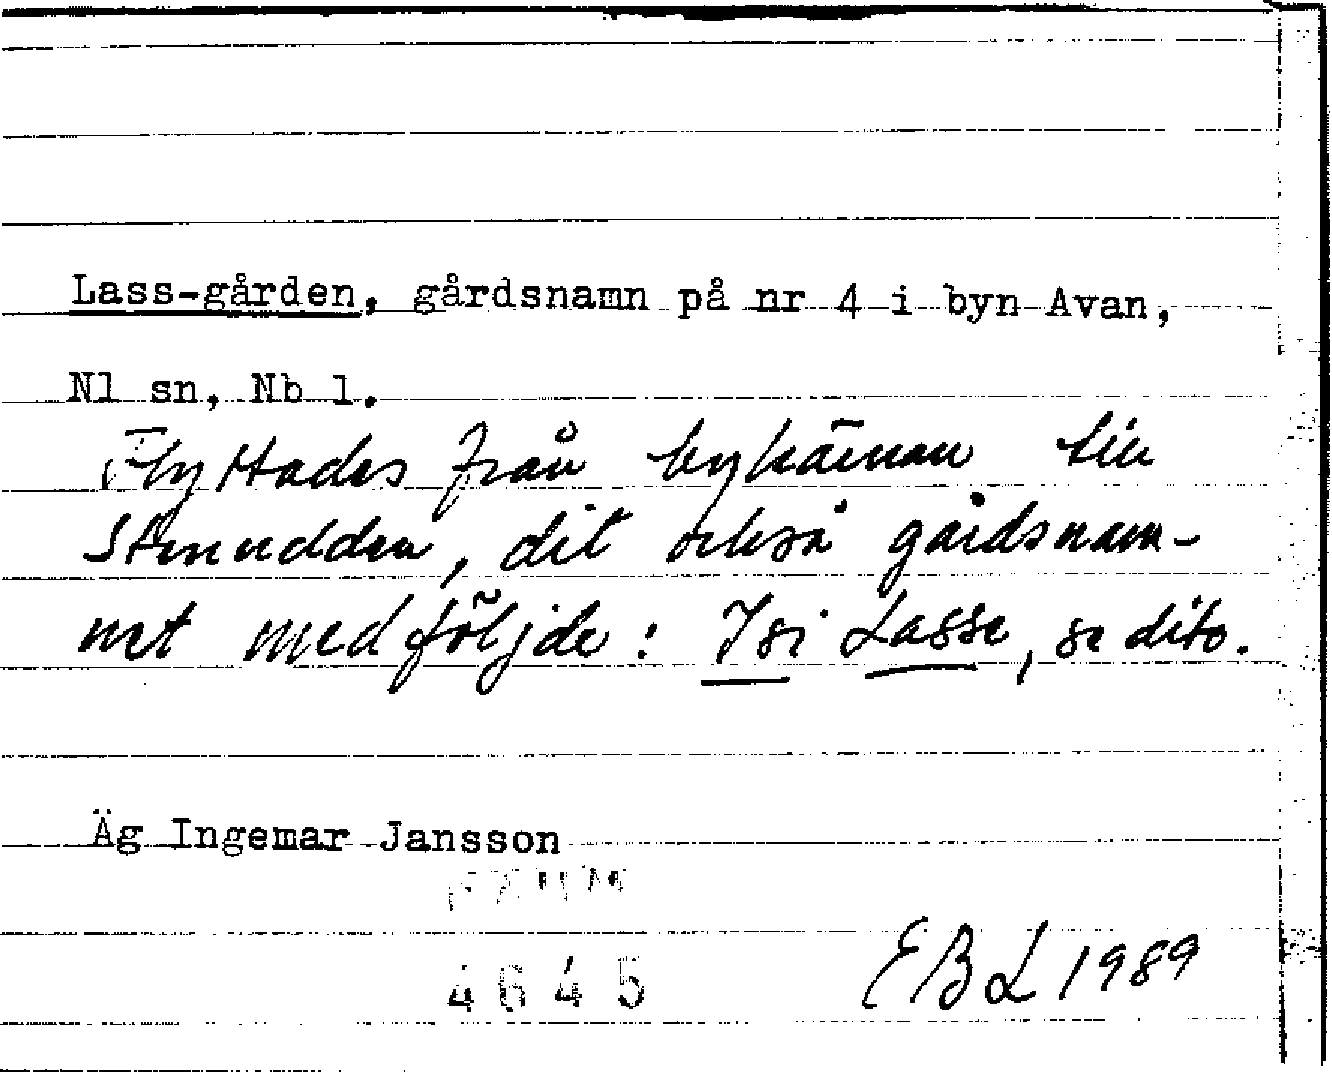 Lass-gården, gårdsnamn på nr 4 i byn Avan,
Nl sn, Nb l.
Flyttades från bykärnan till
Stenudden, dit också gårdsnam-
net medföljde: Isi Lasse, se dito.
Äg Ingemar Jansson
4645
EBL 1989